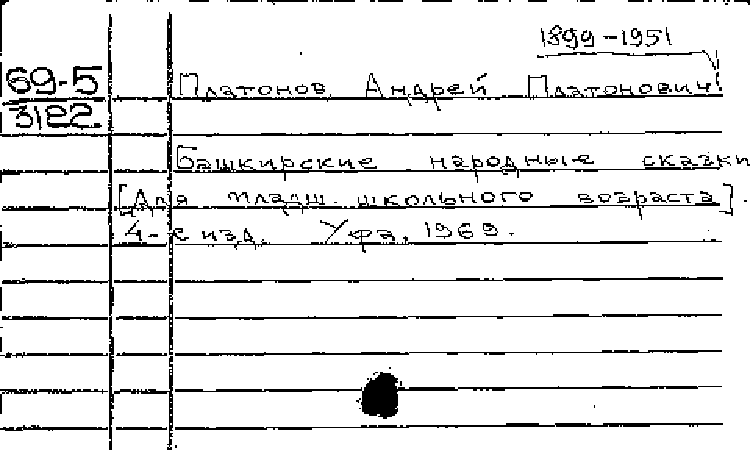 1899-1951
69-5
3182.
Платонов Андрей Платонович
Башкирские народные сказки
[Для младш. школьного возраста].
4-е изд. Уфа, 1969.